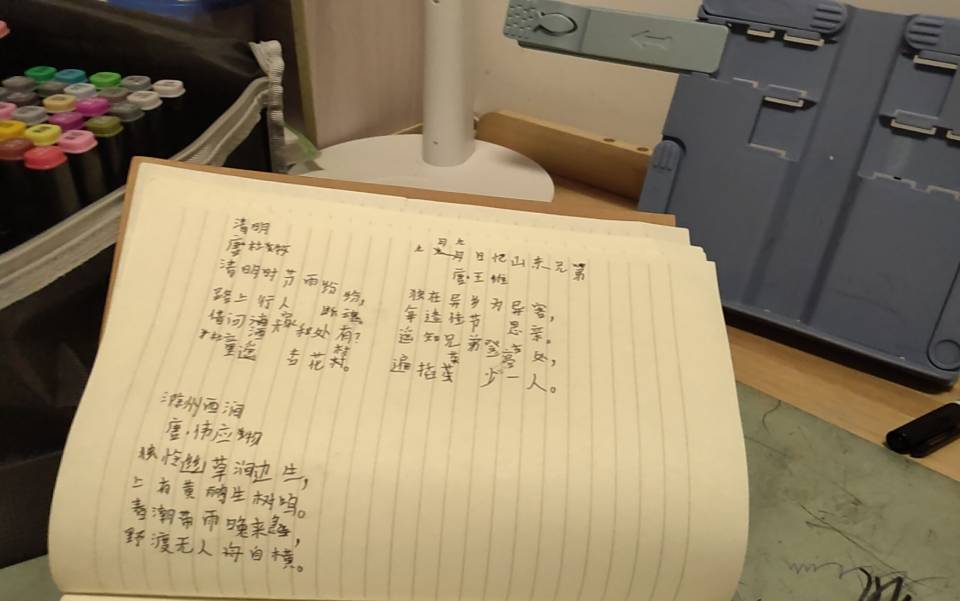 清明
唐杜牧
清明时节雨纷纷,
路上行人 断魂
借问酒家 何处有?
牧童遥 杏花村。
九月九日忆山东兄弟
唐·王维
独在异乡为异客,
每逢佳节 思亲。
遥知兄弟登高处,
遍插茱 少一人。
滁州西涧
唐·韦应物
独怜幽草涧边生,
上有黄鹂生树鸣。
春潮带雨晚来急,
野渡无人舟自横。